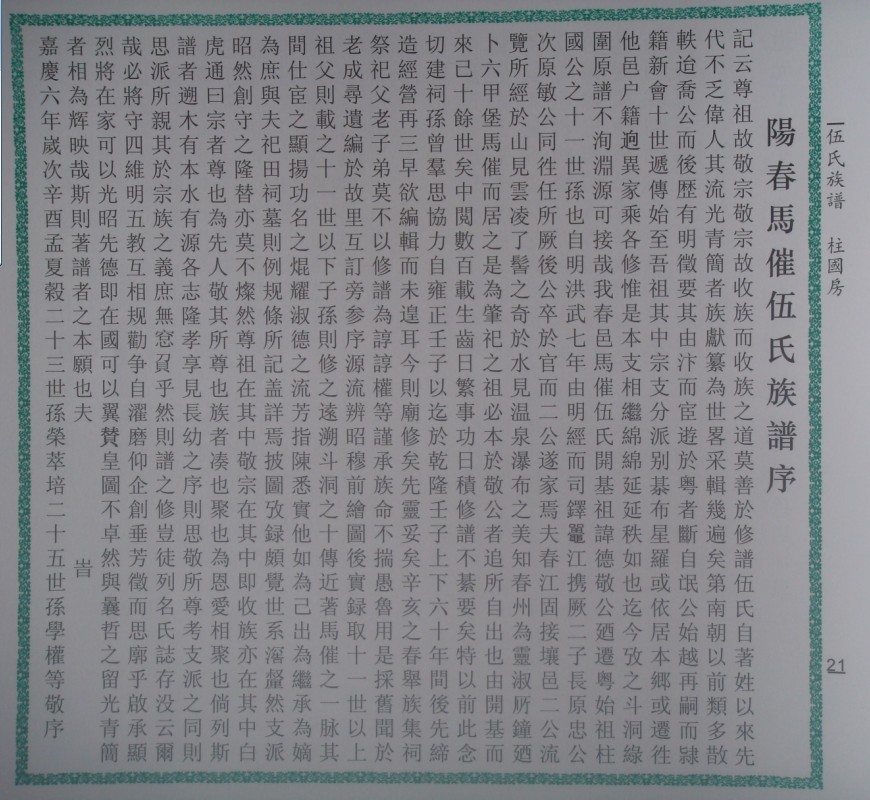 伍氏族譜　柱國房
21
陽春馬催伍氏族譜序
記云尊祖故敬宗敬宗故收族而收族之道莫善於修譜伍氏自著姓以來先
代不乏偉人其流光青簡者族獻纂為世畧采輯幾遍矣第南朝以前類多散
軼迨喬公而後歷有明徵要其由汴而宦遊於粵者斷自氓公始越再嗣而隷
籍新會十世遞傳始至吾祖其中宗支分派别棊布星羅或依居本鄉或遷徃
他邑户籍逈異家乘各修惟是本支相繼綿綿延延秩如也迄今攷之斗洞綠
圍原譜不洵淵源可接哉我春邑馬催伍氏開基祖諱德敬公廼遷粤始祖柱
國公之十一世孫也自明洪武七年由明經而司鐸鼉江携厥二子長原忠公
次原敏公同徃任所厥後公卒於官而二公遂家焉夫春江固接壤邑二公流
覽所經於山見雲凌了髻之奇於水見温泉瀑布之美知春州為靈淑所鐘廼
卜六甲堡馬催而居之是為肇祀之祖必本於敬公者追所自出也由開基而
來已十餘世矣中閲數百載生齒日繁事功日積修譜不綦要矣特以前此念
切建祠孫曾羣思協力自雍正壬子以迄於乾隆壬子上下六十年間後先締
造經營再三早欲編輯而未遑耳今則廟修矣先靈妥矣辛亥之春舉族集祠
祭祀父老子弟莫不以修譜為諄諄權等謹承族命不揣愚魯用是採舊聞於
老成尋遺編於故里互訂旁参序源流辨昭穆前繪圖後實録取十一世以上
祖父則載之十一世以下子孫則修之遠溯斗洞之十傳近著馬催之一脉其
間仕宦之顯揚功名之焜耀淑德之流芳指陳悉實他如為己出為繼承為嫡
為庶與夫祀田祠墓則例规條所記盖詳焉披圖攷録頗覺世系滘釐然支派
昭然創守之隆替亦莫不燦然尊祖在其中敬宗在其中即收族亦在其中白
虎通曰宗者尊也為先人敬其所尊也族者凑也聚也為恩愛相聚也倘列斯
譜者遡木有本水有源各志隆孝享見長幼之序則思敬所尊考支派之同則
思派所親其於宗族之義庶無窓負乎然則譜之修豈徒列名氏誌存没云爾
哉必將守四維明五教互相规勸争自濯磨仰企創垂芳徵而思廓乎啟承顯
烈將在家可以光昭先德即在國可以翼贊皇圖不卓然與曩哲之留光青簡
者相為輝映哉斯則著譜者之本願也夫　　　　　旹
嘉慶六年嵗次辛酉孟夏穀二十三世孫榮萃培二十五世孫學權等敬序